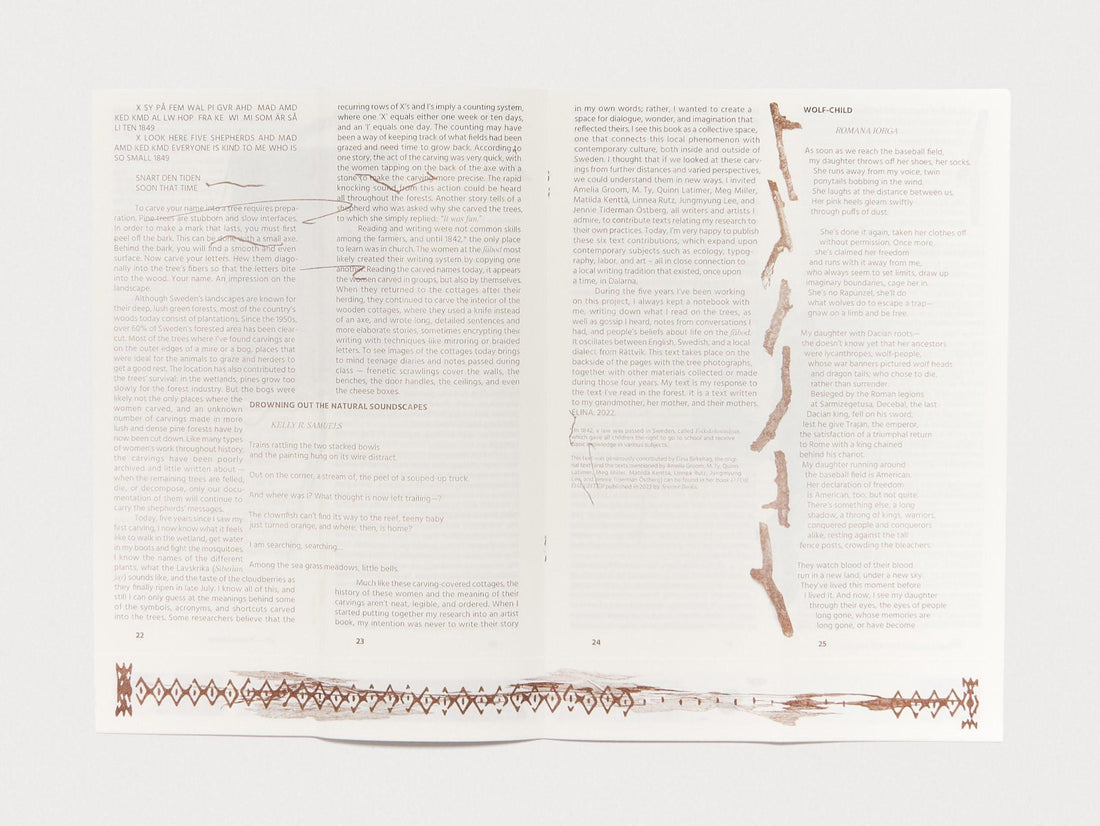 X SY PÅ FEM WAL PI GVR AHD MAD AMD
KED KMD AL LW HOP FRA KE WI MI SOM ÄR SÅ
LI TEN 1849
X LOOK HERE FIVE SHEPHERDS AHD MAD
AMD KED KMD EVERYONE IS KIND TO ME WHO IS
SO SMALL 1849
SNART DEN TIDEN
SOON THAT TIME
To carve your name into a tree requires prepa-
ration. Pine trees are stubborn and slow interfaces.
In order to make a mark that lasts, you must first
peel off the bark. This can be done with a small axe.
Behind the bark, you will find a smooth and even
surface. Now carve your letters. Hew them diago-
nally into the tree's fibers so that the letters bite
into the wood. Your name. An impression on the
landscape.
Although Sweden's landscapes are known for
their deep, lush green forests, most of the country's
woods today consist of plantations. Since the 1950s,
over 60% of Sweden's forested area has been clear-
cut. Most of the trees where I've found carvings are
on the outer edges of a mire or a bog, places that
were ideal for the animals to graze and herders to
get a good rest. The location has also contributed to
the trees' survival: in the wetlands, pines grow too
slowly for the forest industry. But the bogs were
likely not the only places where the
women carved, and an unknown
number of carvings made in more
lush and dense pine forests have by
now been cut down. Like many types
of women's work throughout history,
the carvings have been poorly
archived and little written about —
when the remaining trees are felled,
die, or decompose, only our docu-
mentation of them will continue to
carry the shepherds' messages.
Today, five years since I saw my
first carving, I now know what it feels
like to walk in the wetland, get water
in my boots and fight the mosquitoes.
I know the names of the different
plants, what the Lavskrika (Siberian
jay) sounds like, and the taste of the cloudberries as
they finally ripen in late July. I know all of this, and
still I can only guess at the meanings behind some
of the symbols, acronyms, and shortcuts carved
into the trees. Some researchers believe that the
22
recurring rows of X's and I's imply a counting system,
where one 'X' equals either one week or ten days,
and an 'I' equals one day. The counting may have
been a way of keeping track of what fields had been
grazed and need time to grow back. According to
one story, the act of the carving was very quick, with
the women tapping on the back of the axe with a
stone to make the carving more precise. The rapid
knocking sound from this action could be heard
all throughout the forests. Another story tells of a
shepherd who was asked why she carved the trees,
to which she simply replied: "It was fun."
Reading and writing were not common skills
among the farmers, and until 1842,* the only place
to learn was in church. The women at the fäbod most
likely created their writing system by copying one
another. Reading the carved names today, it appears
the women carved in groups, but also by themselves.
When they returned to the cottages after their
herding, they continued to carve the interior of the
wooden cottages, where they used a knife instead
of an axe, and wrote long, detailed sentences and
more elaborate stories, sometimes encrypting their
writing with techniques like mirroring or braided
letters. To see images of the cottages today brings
to mind teenage diaries and notes passed during
class — frenetic scrawlings cover the walls, the
benches, the door handles, the ceilings, and even
the cheese boxes.
DROWNING OUT THE NATURAL SOUNDSCAPES
KELLY R. SAMUELS
Trains rattling the two stacked bowls
and the painting hung on its wire distract.
Out on the corner, a stream of, the peel of a souped-up truck.
And where was I? What thought is now left trailing—?
The clownfish can't find its way to the reef, teeny baby
just turned orange, and where, then, is home?
I am searching, searching...
Among the sea grass meadows, little bells.
Much like these carving-covered cottages, the
history of these women and the meaning of their
carvings aren't neat, legible, and ordered. When I
started putting together my research into an artist
book, my intention was never to write their story
23
in my own words; rather, I wanted to create a
space for dialogue, wonder, and imagination that
reflected theirs. I see this book as a collective space,
one that connects this local phenomenon with
contemporary culture, both inside and outside of
Sweden. I thought that if we looked at these carv-
ings from further distances and varied perspectives,
we could understand them in new ways. I invited
Amelia Groom, M. Ty, Quinn Latimer, Meg Miller,
Matilda Kenttä, Linnea Rutz, Jungmyung Lee, and
Jennie Tiderman Östberg, all writers and artists I
admire, to contribute texts relating my research to
their own practices. Today, I'm very happy to publish
these six text contributions, which expand upon
contemporary subjects such as ecology; typog-
raphy, labor, and art – all in close connection to
a local writing tradition that existed, once upon
a time, in Dalarna.
During the five years I've been working
on this project, I always kept a notebook with
me, writing down what I read on the trees, as
well as gossip I heard, notes from conversations I
had, and people's beliefs about life on the fäbod.
It oscillates between English, Swedish, and a local
dialect from Rättvik. This text takes place on the
backside of the pages with the tree photographs,
together with other materials collected or made
during those four years. My text is my response to
the text I've read in the forest. It is a text written
to my grandmother, her mother, and their mothers.
ELINA. 2022.
*In 1842, a law was passed in Sweden, called Folkskolestadgan,
which gave all children the right to go to school and receive
basic knowledge in various subjects.
This text was generously contributed by Elina Birkehag, the origi-
nal text and the texts mentioned by Amelia Groom, M. Ty, Quinn
Latimer, Meg Miller, Matilda Kenttä, Linnea Rutz, Jungmyung
Lee, and Jennie Tiderman Östberg) can be found in her book
published in 2023 by
24
WOLF-CHILD
ROMANA IORGA
As soon as we reach the baseball field,
my daughter throws off her shoes, her socks.
She runs away from my voice, twin
ponytails bobbing in the wind.
She laughs at the distance between us,
Her pink heels gleam swiftly
through puffs of dust.
She's done it again, taken her clothes off
without permission. Once more,
she's claimed her freedom
and runs with it away from me,
who always seem to set limits, draw up
imaginary boundaries, cage her in.
She's no Rapunzel, she'll do
what wolves do to escape a trap—
gnaw on a limb and be free.
My daughter with Dacian roots—
she doesn't know yet that her ancestors
were lycanthropes, wolf-people,
whose war banners pictured wolf heads
and dragon tails; who chose to die
rather than surrender.
Besieged by the Roman legions
at Sarmizegetusa, Decebal, the last
Dacian king, fell on his sword,
lest he give Trajan, the emperor,
the satisfaction of a triumphal return
to Rome with a king chained
behind his chariot.
My daughter running around
the baseball field is American.
Her declaration of freedom
is American, too, but not quite.
There's something else; a long
shadow, a throng of kings, warriors,
conquered people and conquerors
alike, resting against the tall
fence posts, crowding the bleachers.
They watch blood of their blood
run in a new land, under a new sky.
They've lived this moment before
I lived it. And now, I see my daughter
through their eyes, the eyes of people
long gone, whose memories are
long gone, or have become
25